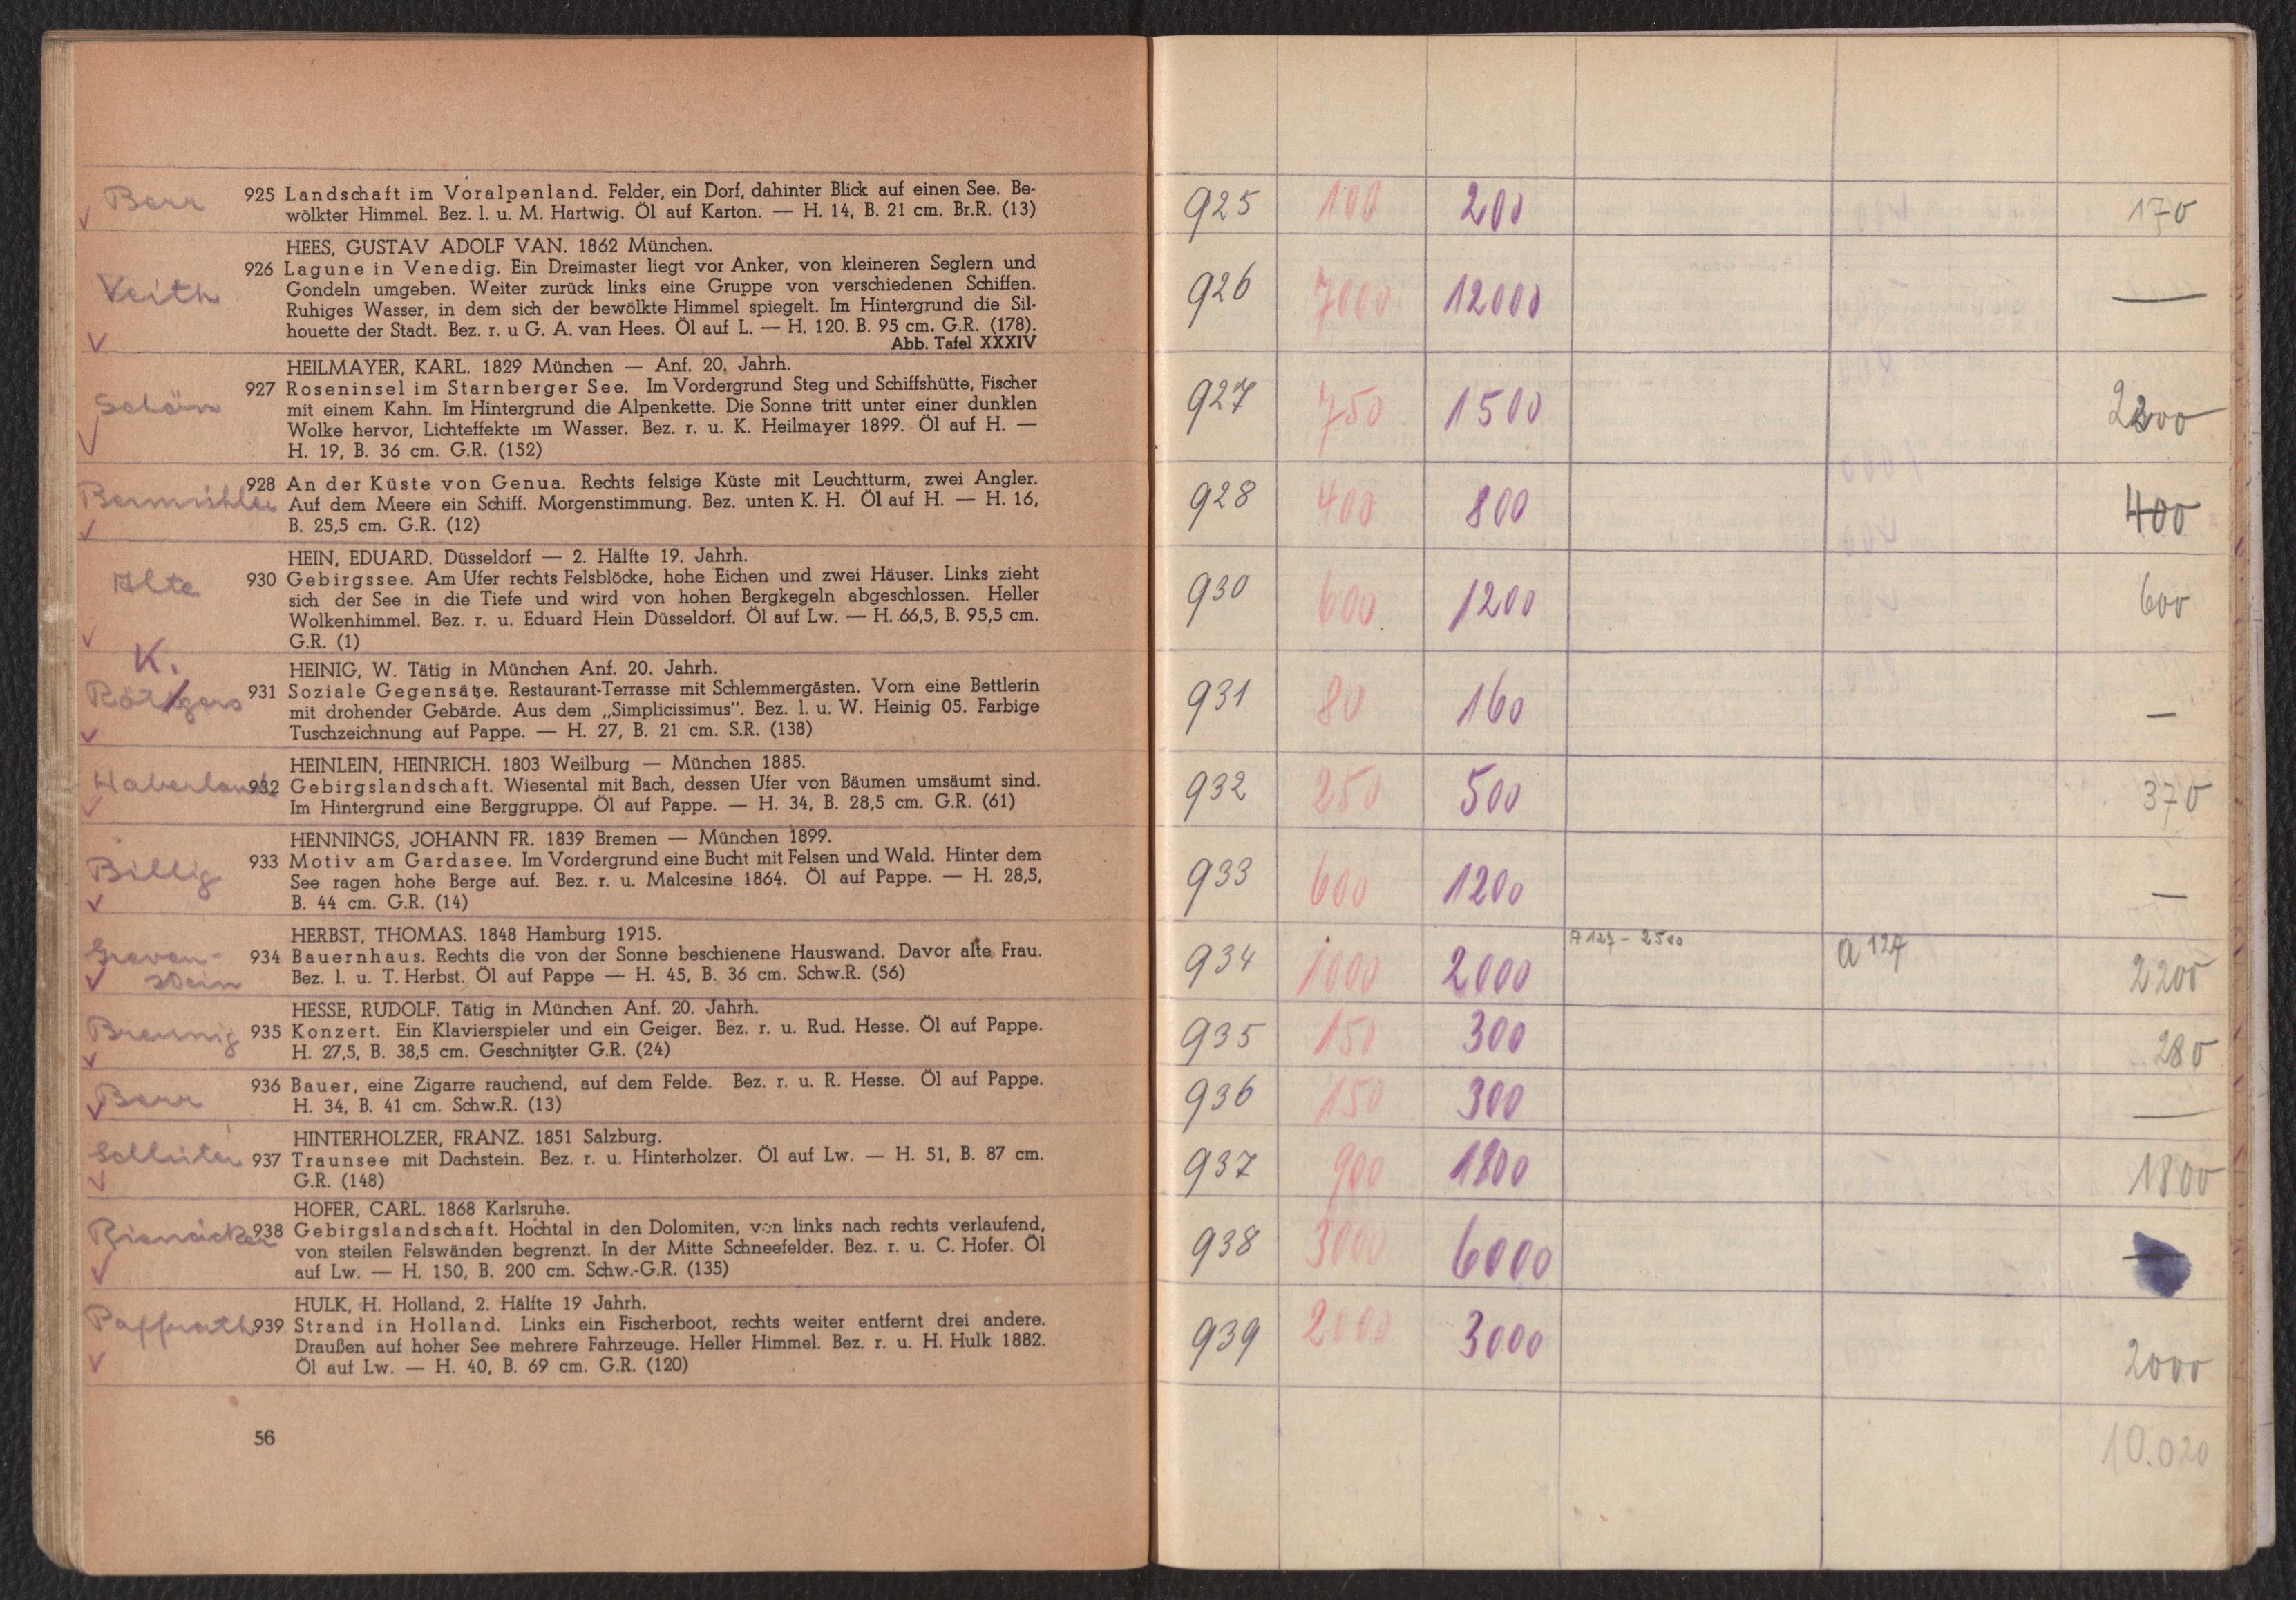 Berr
925 Landschaft im Voralpenland. Felder, ein Dorf, dahinter Blick auf einen See. Be-
wölkter Himmel. Bez. l. u. M. Hartwig. Öl auf Karton. — H. 14, B. 21 cm. Br.R. (13)
HEES, GUSTAV ADOLF VAN. 1862 München.
Veith
926 Lagune in Venedig. Ein Dreimaster liegt vor Anker, von kleineren Seglern und
Gondeln umgeben. Weiter zurück links eine Gruppe von verschiedenen Schiffen.
Ruhiges Wasser, in dem sich der bewölkte Himmel spiegelt. Im Hintergrund die Sil-
houette der Stadt. Bez. r. u G. A. van Hees. Öl auf L. — H. 120. B. 95 cm. G.R. (178).
Abb. Tafel XXXIV
HEILMAYER, KARL. 1829 München — Anf. 20. Jahrh.
Schön
927 Roseninsel im Starnberger See. Im Vordergrund Steg und Schiffshütte, Fischer
mit einem Kahn. Im Hintergrund die Alpenkette. Die Sonne tritt unter einer dunklen
Wolke hervor, Lichteffekte im Wasser. Bez. r. u. K. Heilmayer 1899. Öl auf H. —
H. 19, B. 36 cm. G.R. (152)
Bermühler
928 An der Küste von Genua. Rechts felsige Küste mit Leuchtturm, zwei Angler.
Auf dem Meere ein Schiff. Morgenstimmung. Bez. unten K. H. Öl auf H. — H. 16,
B. 25,5 cm. G.R. (12)
HEIN, EDUARD. Düsseldorf — 2. Hälfte 19. Jahrh.
Alte
930 Gebirgssee. Am Ufer rechts Felsblöcke, hohe Eichen und zwei Häuser. Links zieht
sich der See in die Tiefe und wird von hohen Bergkegeln abgeschlossen. Heller
Wolkenhimmel. Bez. r. u. Eduard Hein Düsseldorf. Öl auf Lw. — H. 66,5, B. 95,5 cm.
G.R. (1)
K.
HEINIG, W. Tätig in München Anf. 20. Jahrh.
Röttgers
931 Soziale Gegensätze. Restaurant-Terrasse mit Schlemmergästen. Vorn eine Bettlerin
mit drohender Gebärde. Aus dem „Simplicissimus". Bez. l. u. W. Heinig 05. Farbige
Tuschzeichnung auf Pappe. — H. 27, B. 21 cm. S.R. (138)
HEINLEIN, HEINRICH. 1803 Weilburg — München 1885.
Haberland
932 Gebirgslandschaft. Wiesental mit Bach, dessen Ufer von Bäumen umsäumt sind.
Im Hintergrund eine Berggruppe. Öl auf Pappe. — H. 34, B. 28,5 cm. G.R. (61)
HENNINGS, JOHANN FR. 1839 Bremen — München 1899.
Billig
933 Motiv am Gardasee. Im Vordergrund eine Bucht mit Felsen und Wald. Hinter dem
See ragen hohe Berge auf. Bez. r. u. Malcesine 1864. Öl auf Pappe. — H. 28,5,
B. 44 cm. G.R. (14)
HERBST, THOMAS. 1848 Hamburg 1915.
Graven-
stein
934 Bauernhaus. Rechts die von der Sonne beschienene Hauswand. Davor alte Frau.
Bez. l. u. T. Herbst. Öl auf Pappe — H. 45, B. 36 cm. Schw.R. (56)
HESSE, RUDOLF. Tätig in München Anf. 20. Jahrh.
Brennig
935 Konzert. Ein Klavierspieler und ein Geiger. Bez. r. u. Rud. Hesse. Öl auf Pappe.
H. 27,5, B. 38,5 cm. Geschnitzter G.R. (24)
Berr
936 Bauer, eine Zigarre rauchend, auf dem Felde. Bez. r. u. R. Hesse. Öl auf Pappe.
H. 34, B. 41 cm. Schw.R. (13)
HINTERHOLZER, FRANZ. 1851 Salzburg.
Schlüter
937 Traunsee mit Dachstein. Bez. r. u. Hinterholzer. Öl auf Lw. — H. 51, B. 87 cm.
G.R. (148)
HOFER, CARL. 1868 Karlsruhe.
938 Gebirgslandschaft. Hochtal in den Dolomiten, von links nach rechts verlaufend,
von steilen Felswänden begrenzt. In der Mitte Schneefelder. Bez. r. u. C. Hofer. Öl
auf Lw. — H. 150, B. 200 cm. Schw.-G.R. (135)
HULK, H. Holland, 2. Hälfte 19 Jahrh.
Paffrath
939 Strand in Holland. Links ein Fischerboot, rechts weiter entfernt drei andere.
Draußen auf hoher See mehrere Fahrzeuge. Heller Himmel. Bez. r. u. H. Hulk 1882.
Öl auf Lw. — H. 40, B. 69 cm. G.R. (120)
56
925 100 200 170
926 7000 12000 —
927 750 1500 2200
928 400 800 400
930 600 1200 600
931 80 160 —
932 250 500 370
933 600 1200 —
934 1000 2000 A 127 - 2500 A 127 2200
935 150 300 280
936 150 300 —
937 900 1800 1800
938 3000 6000 —
939 2000 3000 2000
10.020